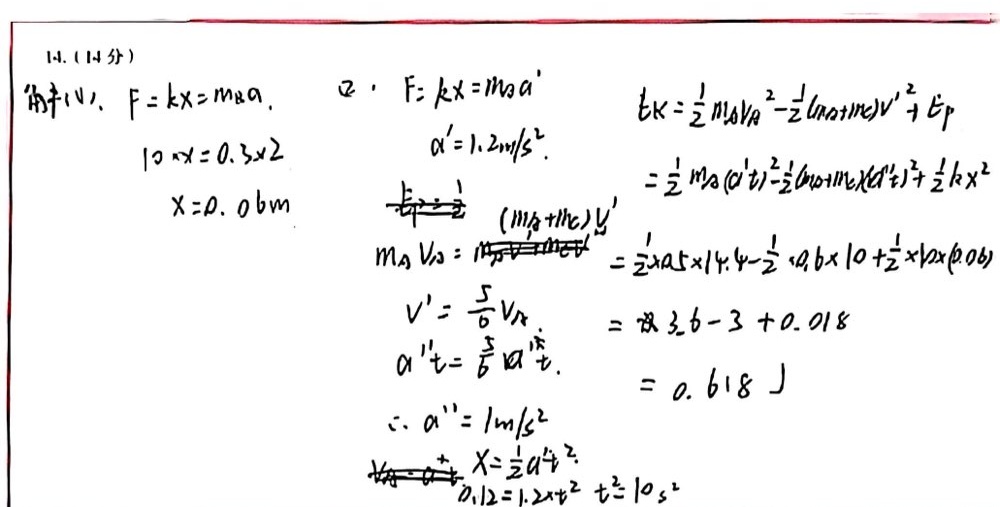 14.(14分)
解(1). F=kx=mBa.
10×x=0.3×2
x=0.06m
2. F=kx=mAa'
a'=1.2m/s².
mAVA=(mA+mC)V'
V'=5/6 VA.
a''t=5/6 a't.
∴a''=1m/s²
X=1/2a't².
0.12=1.2×t² t²=10s²
Ek=1/2mAVA²-1/2(mA+mC)V'²+Ep
=1/2mA(a't)²-1/2(mA+mC)(a''t)²+1/2kx²
=1/2×0.5×14.4-1/2×0.6×10+1/2×10×(0.06)
=3.6-3+0.018
=0.618J